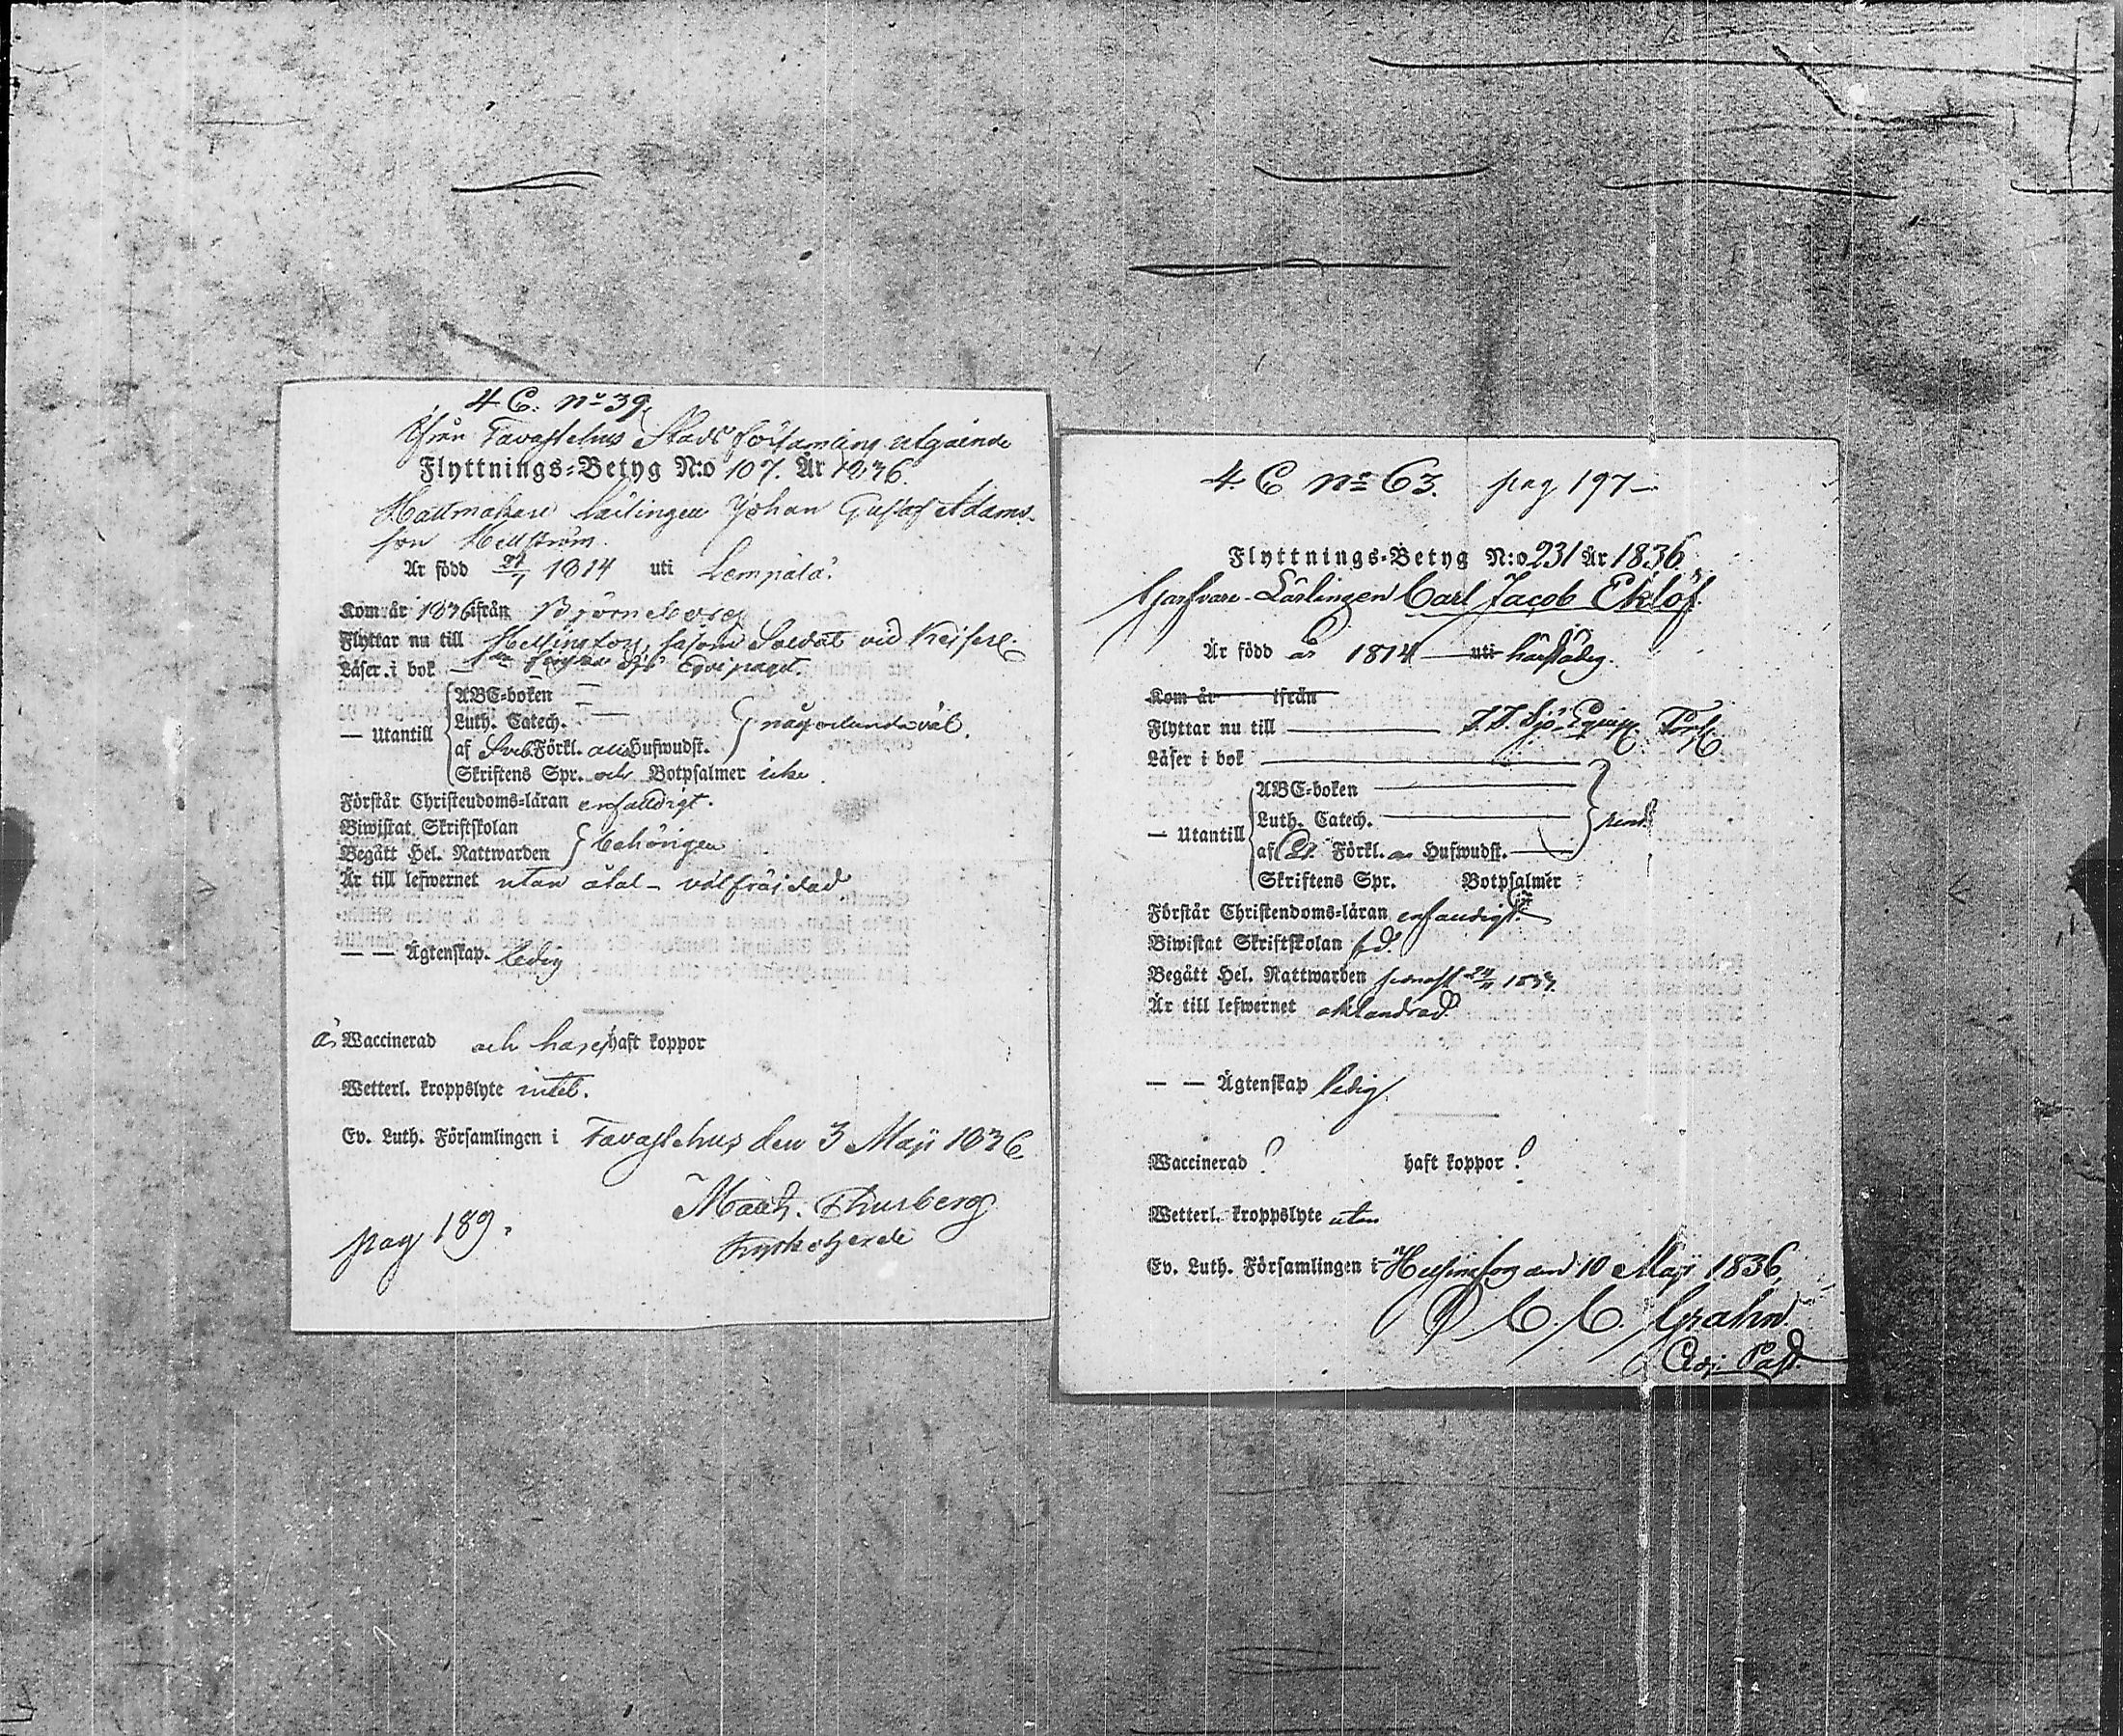 4 C. No 39.
Ifrån Tavastehus Stads församling utgående
Flyttnings-Betyg N:o 107. År 1836.
Hattmakare Lärlingen Johan Gustaf Adams-
son Hellström.
Är född 31/1 1814 uti Lempälä.
Kom år 1836 ifrån Björneborg
Flyttar nu till Helsingfors, såsom Soldat vid Kejserl.
Läser i bok — Sjö Equipaget.
— Utantill
ABC-boken —
Luth. Catech. —
af Sveb. Förkl. alla Hufwudst.
någorlunda väl.
Skriftens Spr. och Botpsalmer icke.
Förstår Christendoms-läran enfaldigt.
Biwistat Skriftskolan
Begått Hel. Nattwarden
behörigen
Är till lefwernet utan åtal - välfräjdad
— — Ägtenskap. ledig
är Waccinerad och har ej haft koppor
Wetterl. kroppslyte intet.
Ev. Luth. Församlingen i Tavastehus den 3 Maji 1836
Math. Thusberg
Kyrkoherde
pag 189.
4 C No 63. pag 197 —
Flyttnings-Betyg N:o 231 År 1836
Garfvare-Lärlingen Carl Jacob Eklöf.
Är född år 1814 — uti härstädes.
Kom år ifrån
Flyttar nu till — Sjö-Equip.
Läser i bok —
— Utantill
ABC-boken —
Luth. Catech. —
af Förkl. Hufwudst. —
Skriftens Spr. Botpsalmer
Förstår Christendoms-läran enfaldigt.
Biwistat Skriftskolan
Begått Hel. Nattwarden senast
Är till lefwernet oklandrad
— — Ägtenskap ledig
Waccinerad ? haft koppor ?
Wetterl. kroppslyte utan
Ev. Luth. Församlingen i Helsingfors den 10 Maji 1836,
C. C. Grahn.
Adj. Past.